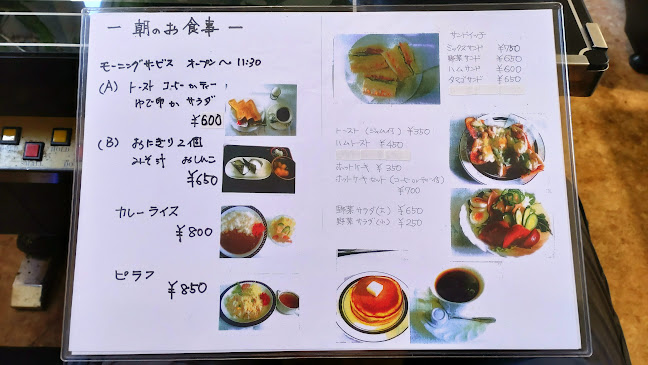 － 朝のお食事 －
モーニングサービス オープン～ 11:30
(A) トースト コーヒーかティー
ゆで卵か サラダ
¥600
(B) おにぎり2個
みそ汁 おしんこ
¥650
カレーライス
¥800
ピラフ
¥850
サンドイッチ
ミックスサンド ¥750
野菜サンド ¥650
ハムサンド ¥600
タマゴサンド ¥650
トースト (ジャム付) ¥350
ハムトースト ¥450
ホットケーキ ¥350
ホットケーキセット (コーヒーorティー付)
¥700
野菜サラダ(大) ¥650
野菜サラダ(小) ¥250